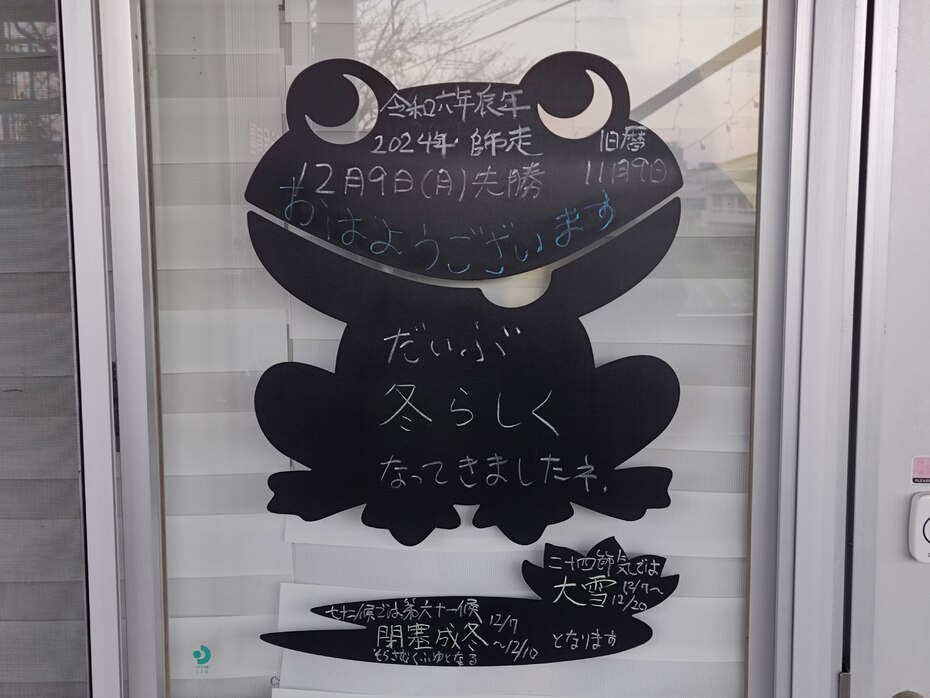 令和六年辰年
2024年 師走
12月9日(月)先勝
旧暦
11月9日
おはようございます
だいぶ
冬らしく
なってきましたネ。
二十四節気では
大雪 12/7〜
12/20
七十二候では第六十一候
閉塞成冬 12/7
〜12/10
そらさむくふゆとなる
となります